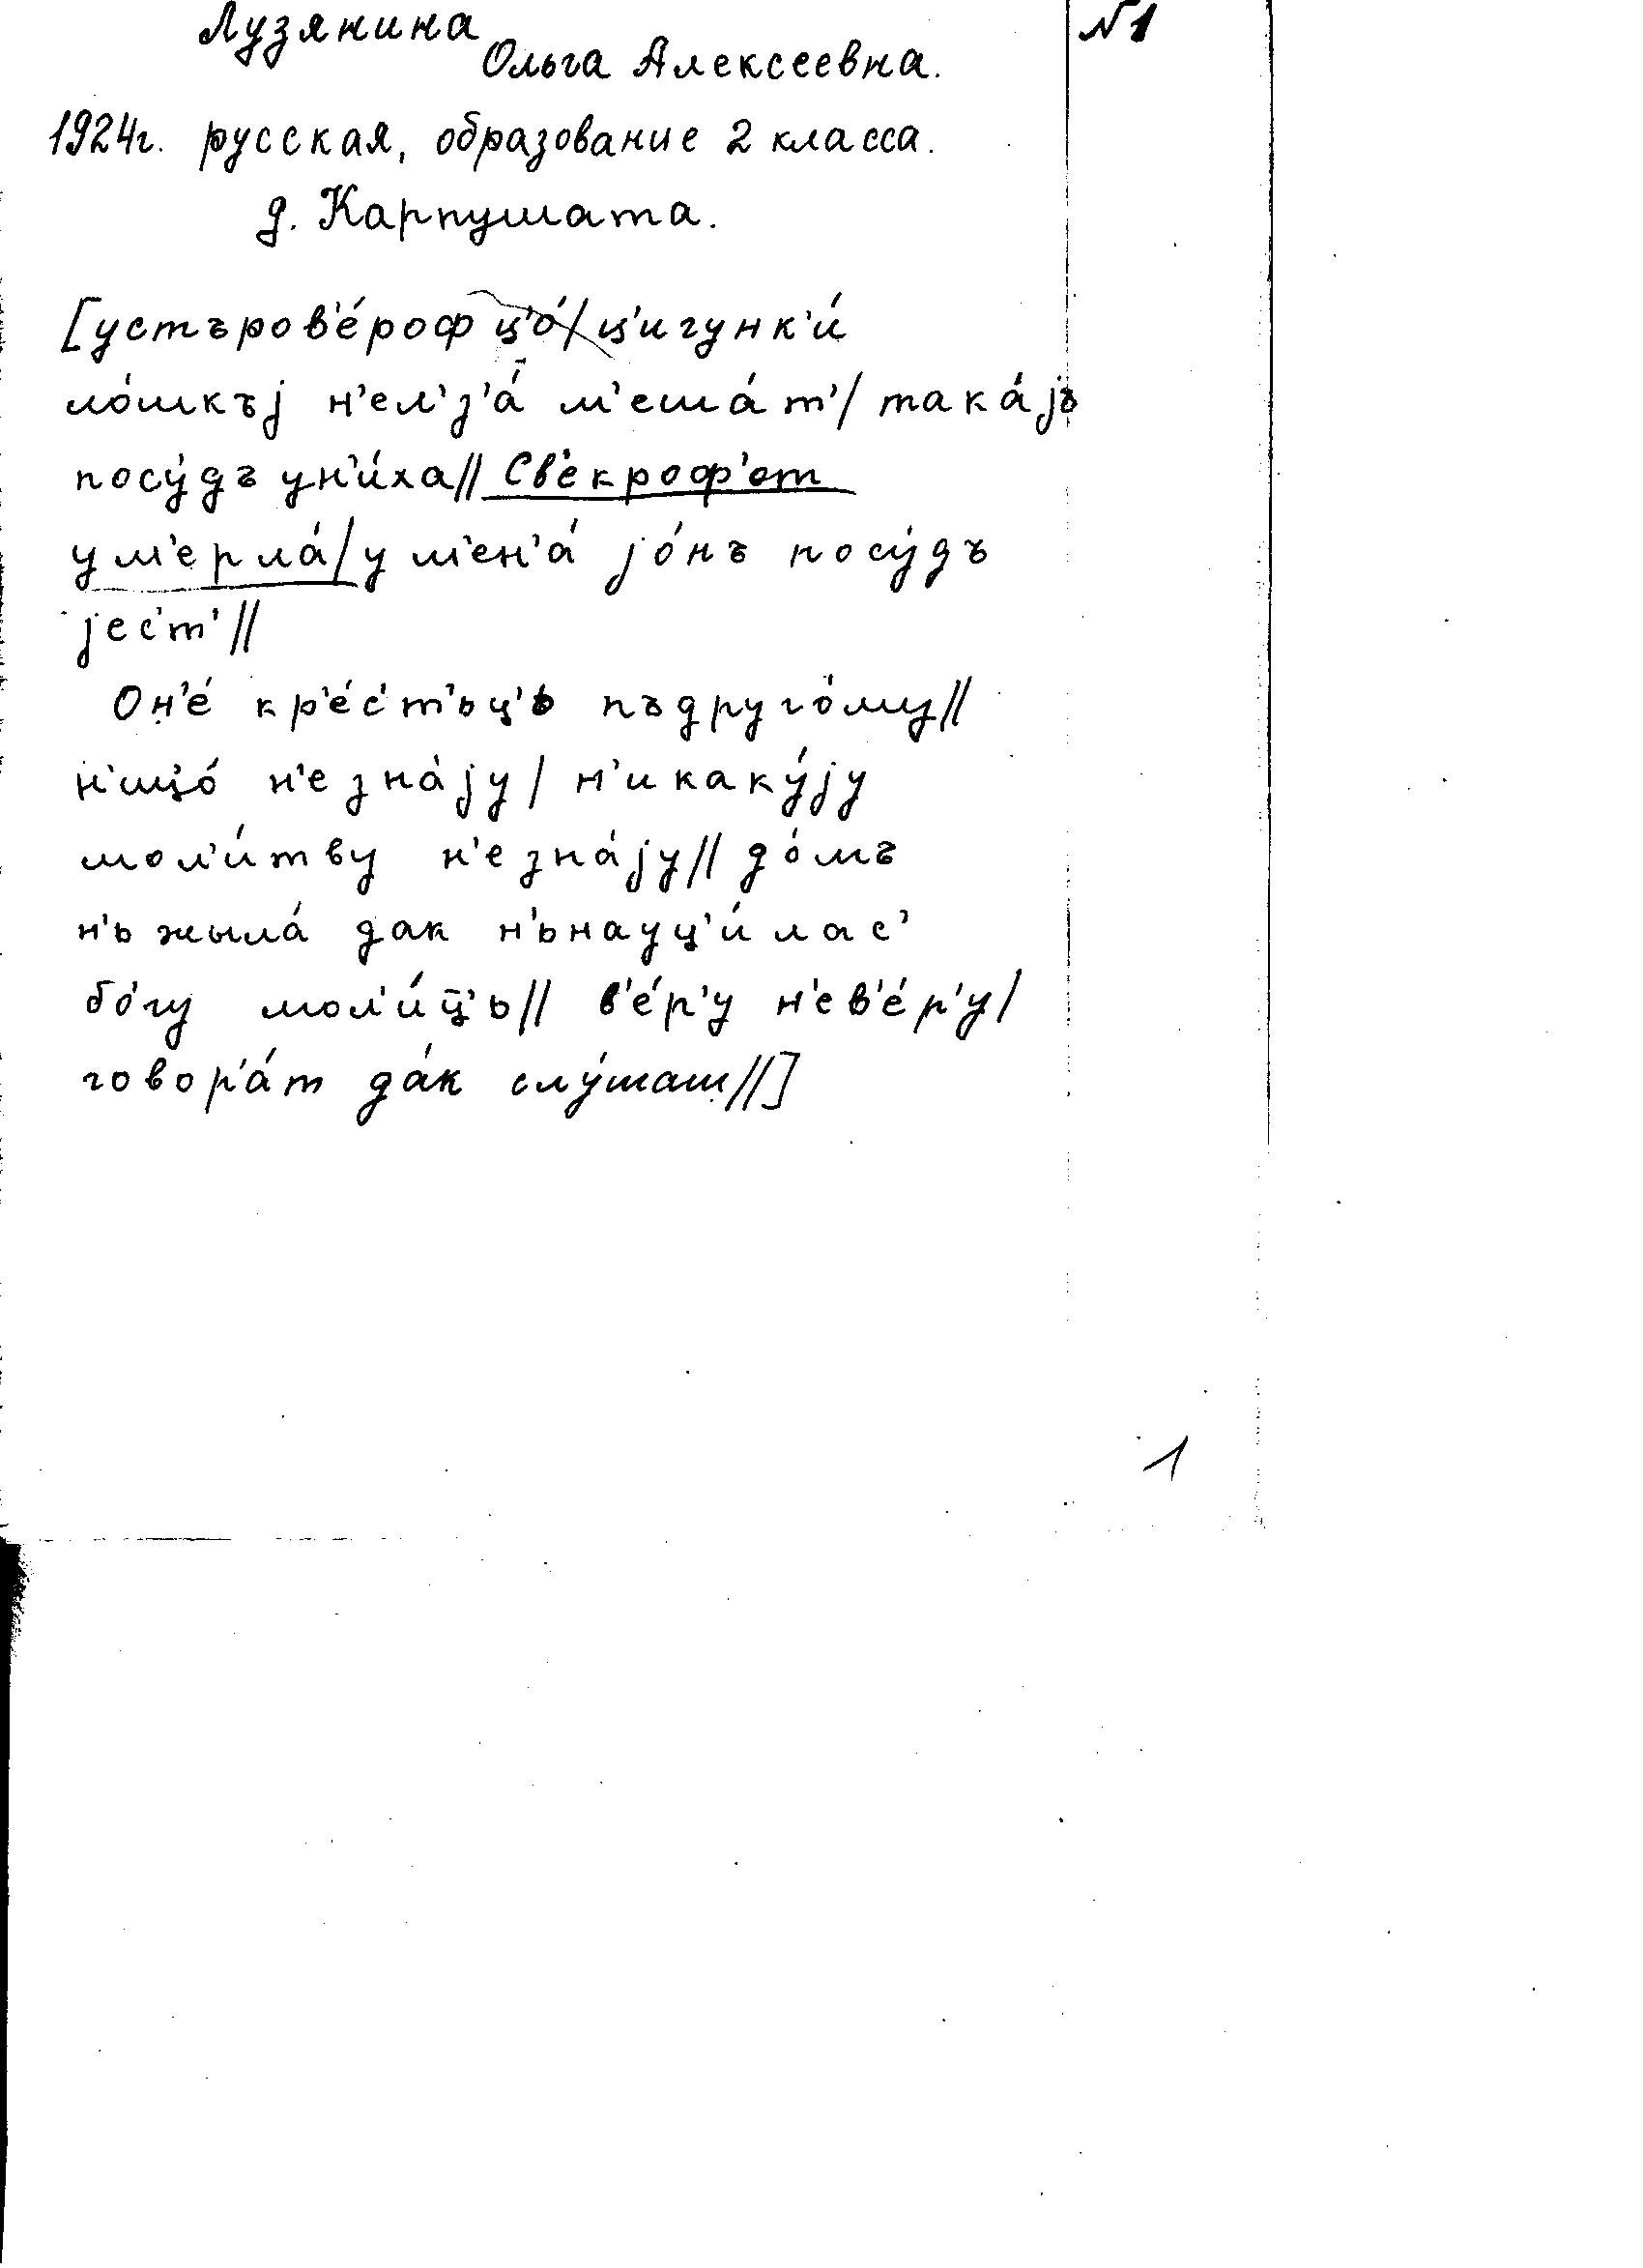 Лузянина
Ольга Алексеевна.
№1
1924г. русская, образование 2 класса.
д. Карпушата.
[устъров'е́роф ц'о́/ ц'игунк'и́
ло́шкъј н'ел'з'а́ м'еша́т'/ така́јъ
посу́дъ ун'и́ха// Св'е́кроф'от
ум'ерла́/ у м'ен'а́ јо́нъ посу́дъ
јес'т'//
Он'е́ кр'е́с'т'ьц'ь пъдруго́му//
н'ищо́ н'езна́ју/ н'икаку́ју
мол'и́тву н'езна́ју// до́мъ
н'ь жыла́ дак н'ьнауц'и́лас'
бо́гу мол'и́ц̄'ь// в'е́р'у н'ев'е́р'у/
говор'а́т да́к слу́шаш//]
1